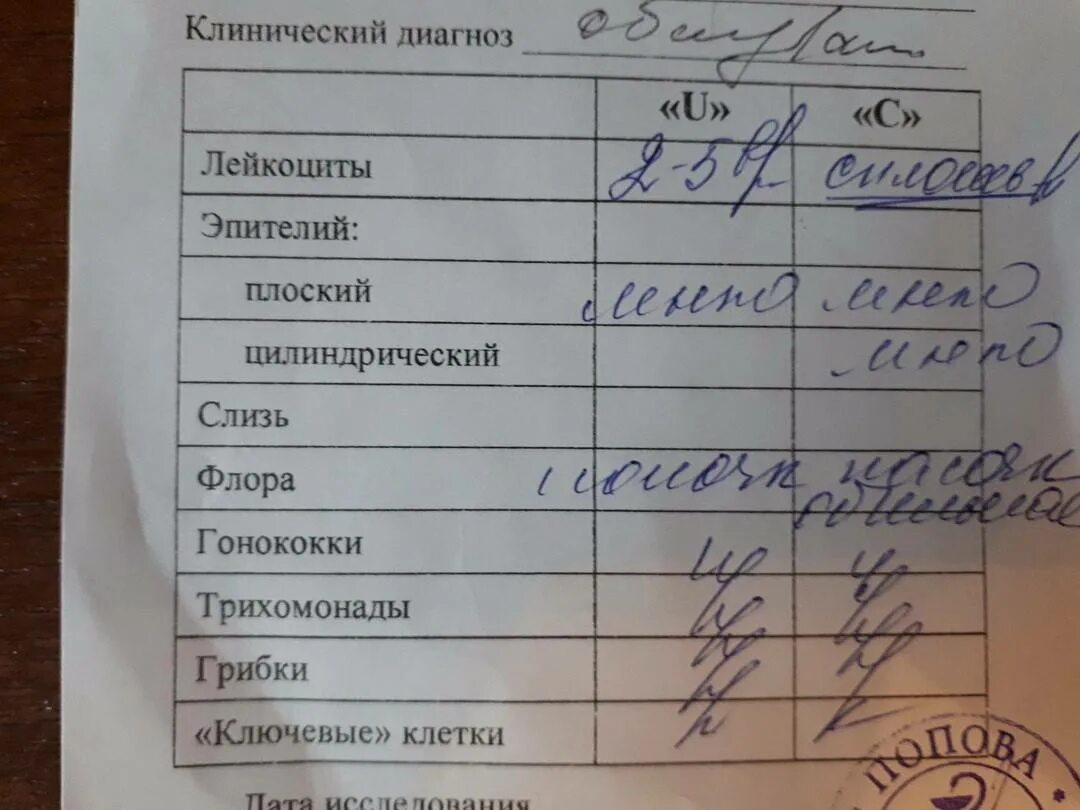 Клинический диагноз
«U» «C»
Лейкоциты 2-5 в/ сплошь в
Эпителий:
плоский много много
цилиндрический много
Слизь
Флора палочк палочк
обильная
Гонококки
Трихомонады
Грибки
«Ключевые» клетки
Дата исследования
ПОПОВА